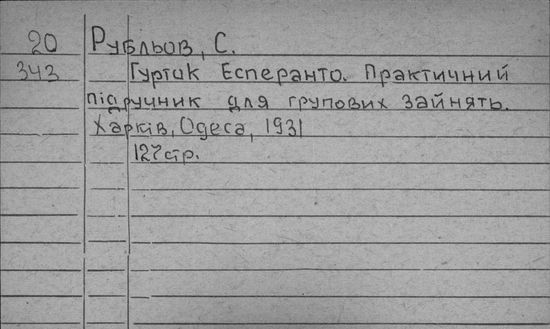 20 Рубльов, С.
343 Гурток Есперанто. Практичний
підручник для групових зайнять.
Харків, Одеса, 1931
127стр.